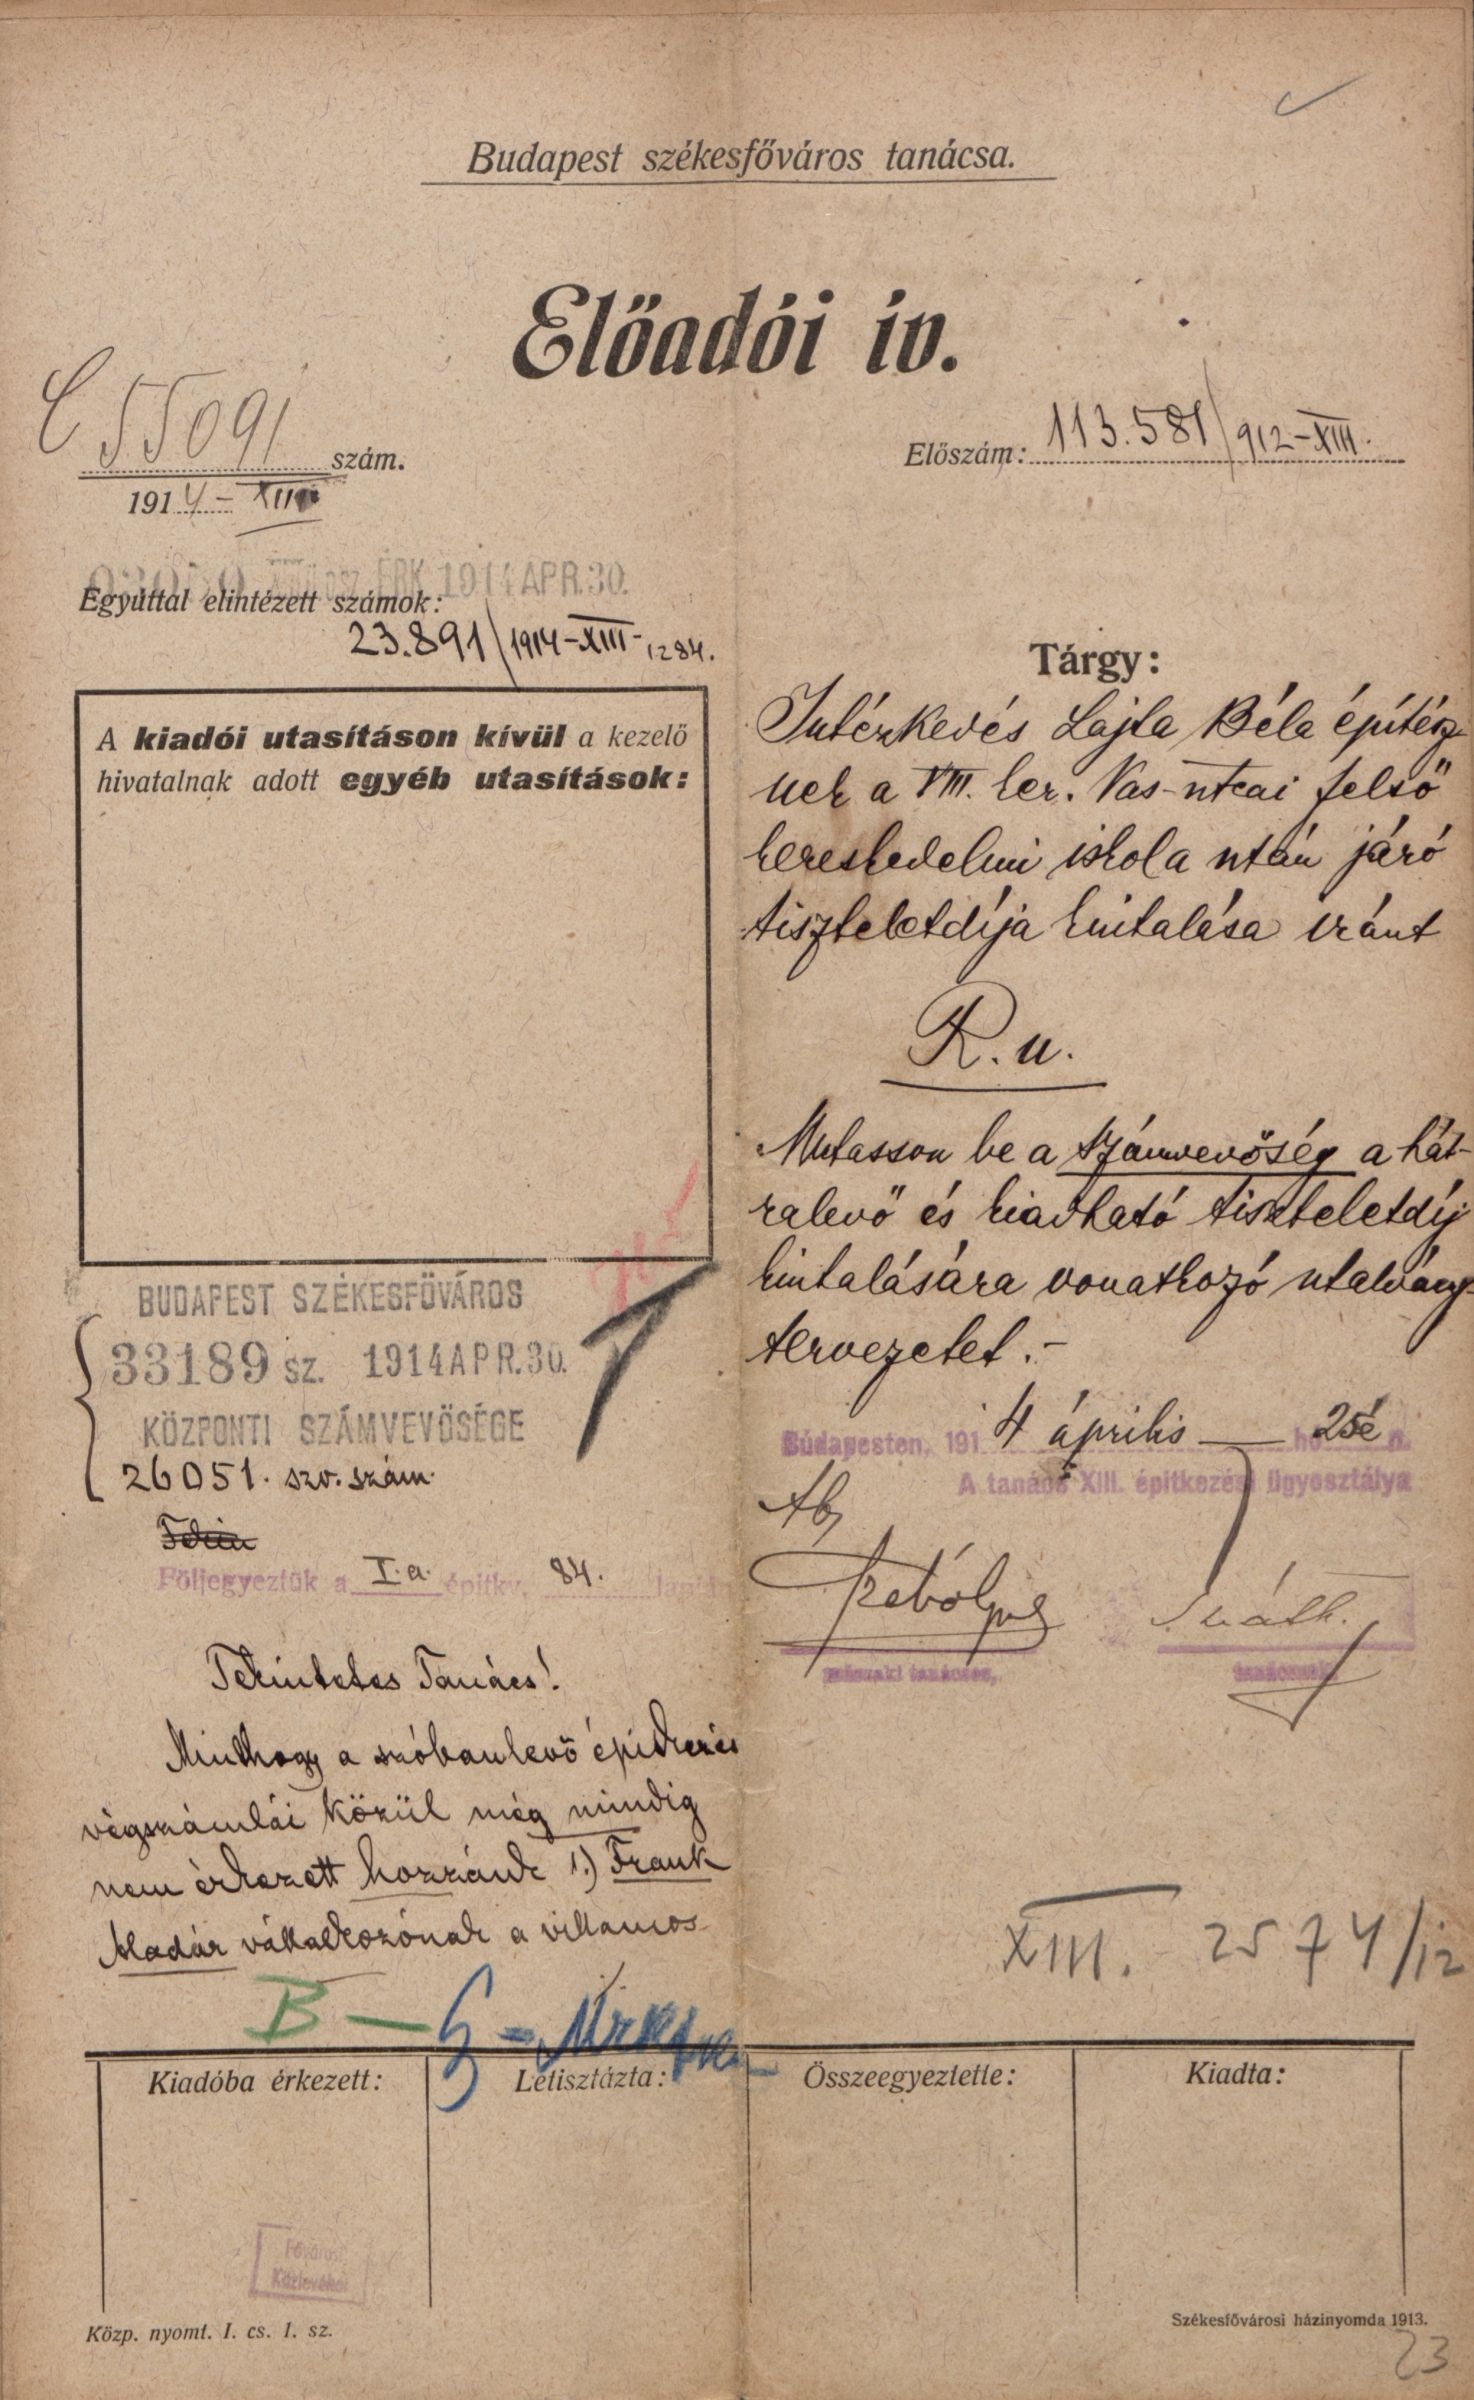 Budapest székesfőváros tanácsa.
Előadói ív.
55091 szám.
1914 - XIII
Előszám: 113.581/912-XIII.
ÉRK. 1914 APR. 30.
Együttal elintézett számok:
23.891/1914-XIII-1284.
A kiadói utasításon kívül a kezelő
hivatalnak adott egyéb utasítások:
BUDAPEST SZÉKESFŐVÁROS
33189 SZ. 1914 APR. 30.
KÖZPONTI SZÁMVEVŐSÉGE
26051. szv. szám.
Följegyeztük a I.a. építkv. 84. lapján
Tekintetes Tanács!
Minthogy a szóbanlevő építkezés
végszámlái közül még mindig
nem érkezett hozzánk 1.) Frank
Aladár vállalkozónak a villamos
Tárgy:
Intézkedés Lajta Béla építész-
nek a VIII. ker. Vas-utcai felső
kereskedelmi iskola után járó
tiszteletdíja kiutalása iránt
R. u.
Mutasson be a számvevőség a hát-
ralevő és kiadható tiszteletdíj
kiutalására vonatkozó utalvány-
tervezetet.-
Budapesten, 1914 április hó 25é n.
A tanács XIII. építkezési ügyosztálya
műszaki tanácsos,
tanácsnok.
XIII. 2574/12
B —
Kiadóba érkezett:
Letisztázta:
Összeegyeztette:
Kiadta:
Fővárosi
Közlevéltár
Közp. nyomt. I. cs. 1. sz.
Székesfővárosi házinyomda 1913.
23